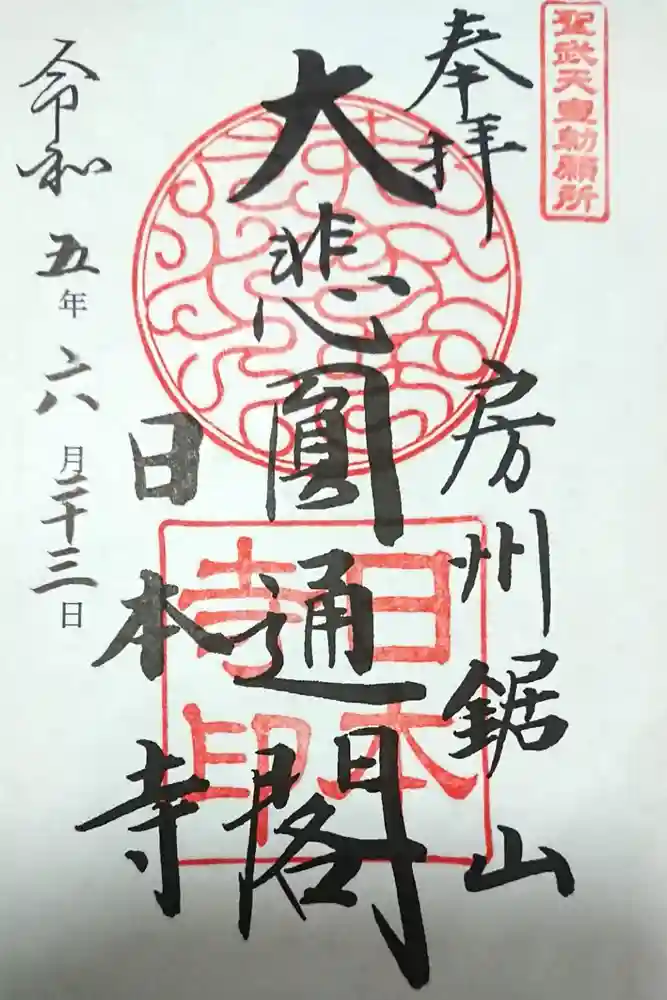 聖武天皇勅願所
奉拝
房州鋸山
大悲圓通閣
日本寺
日本寺印
令和五年六月二十三日